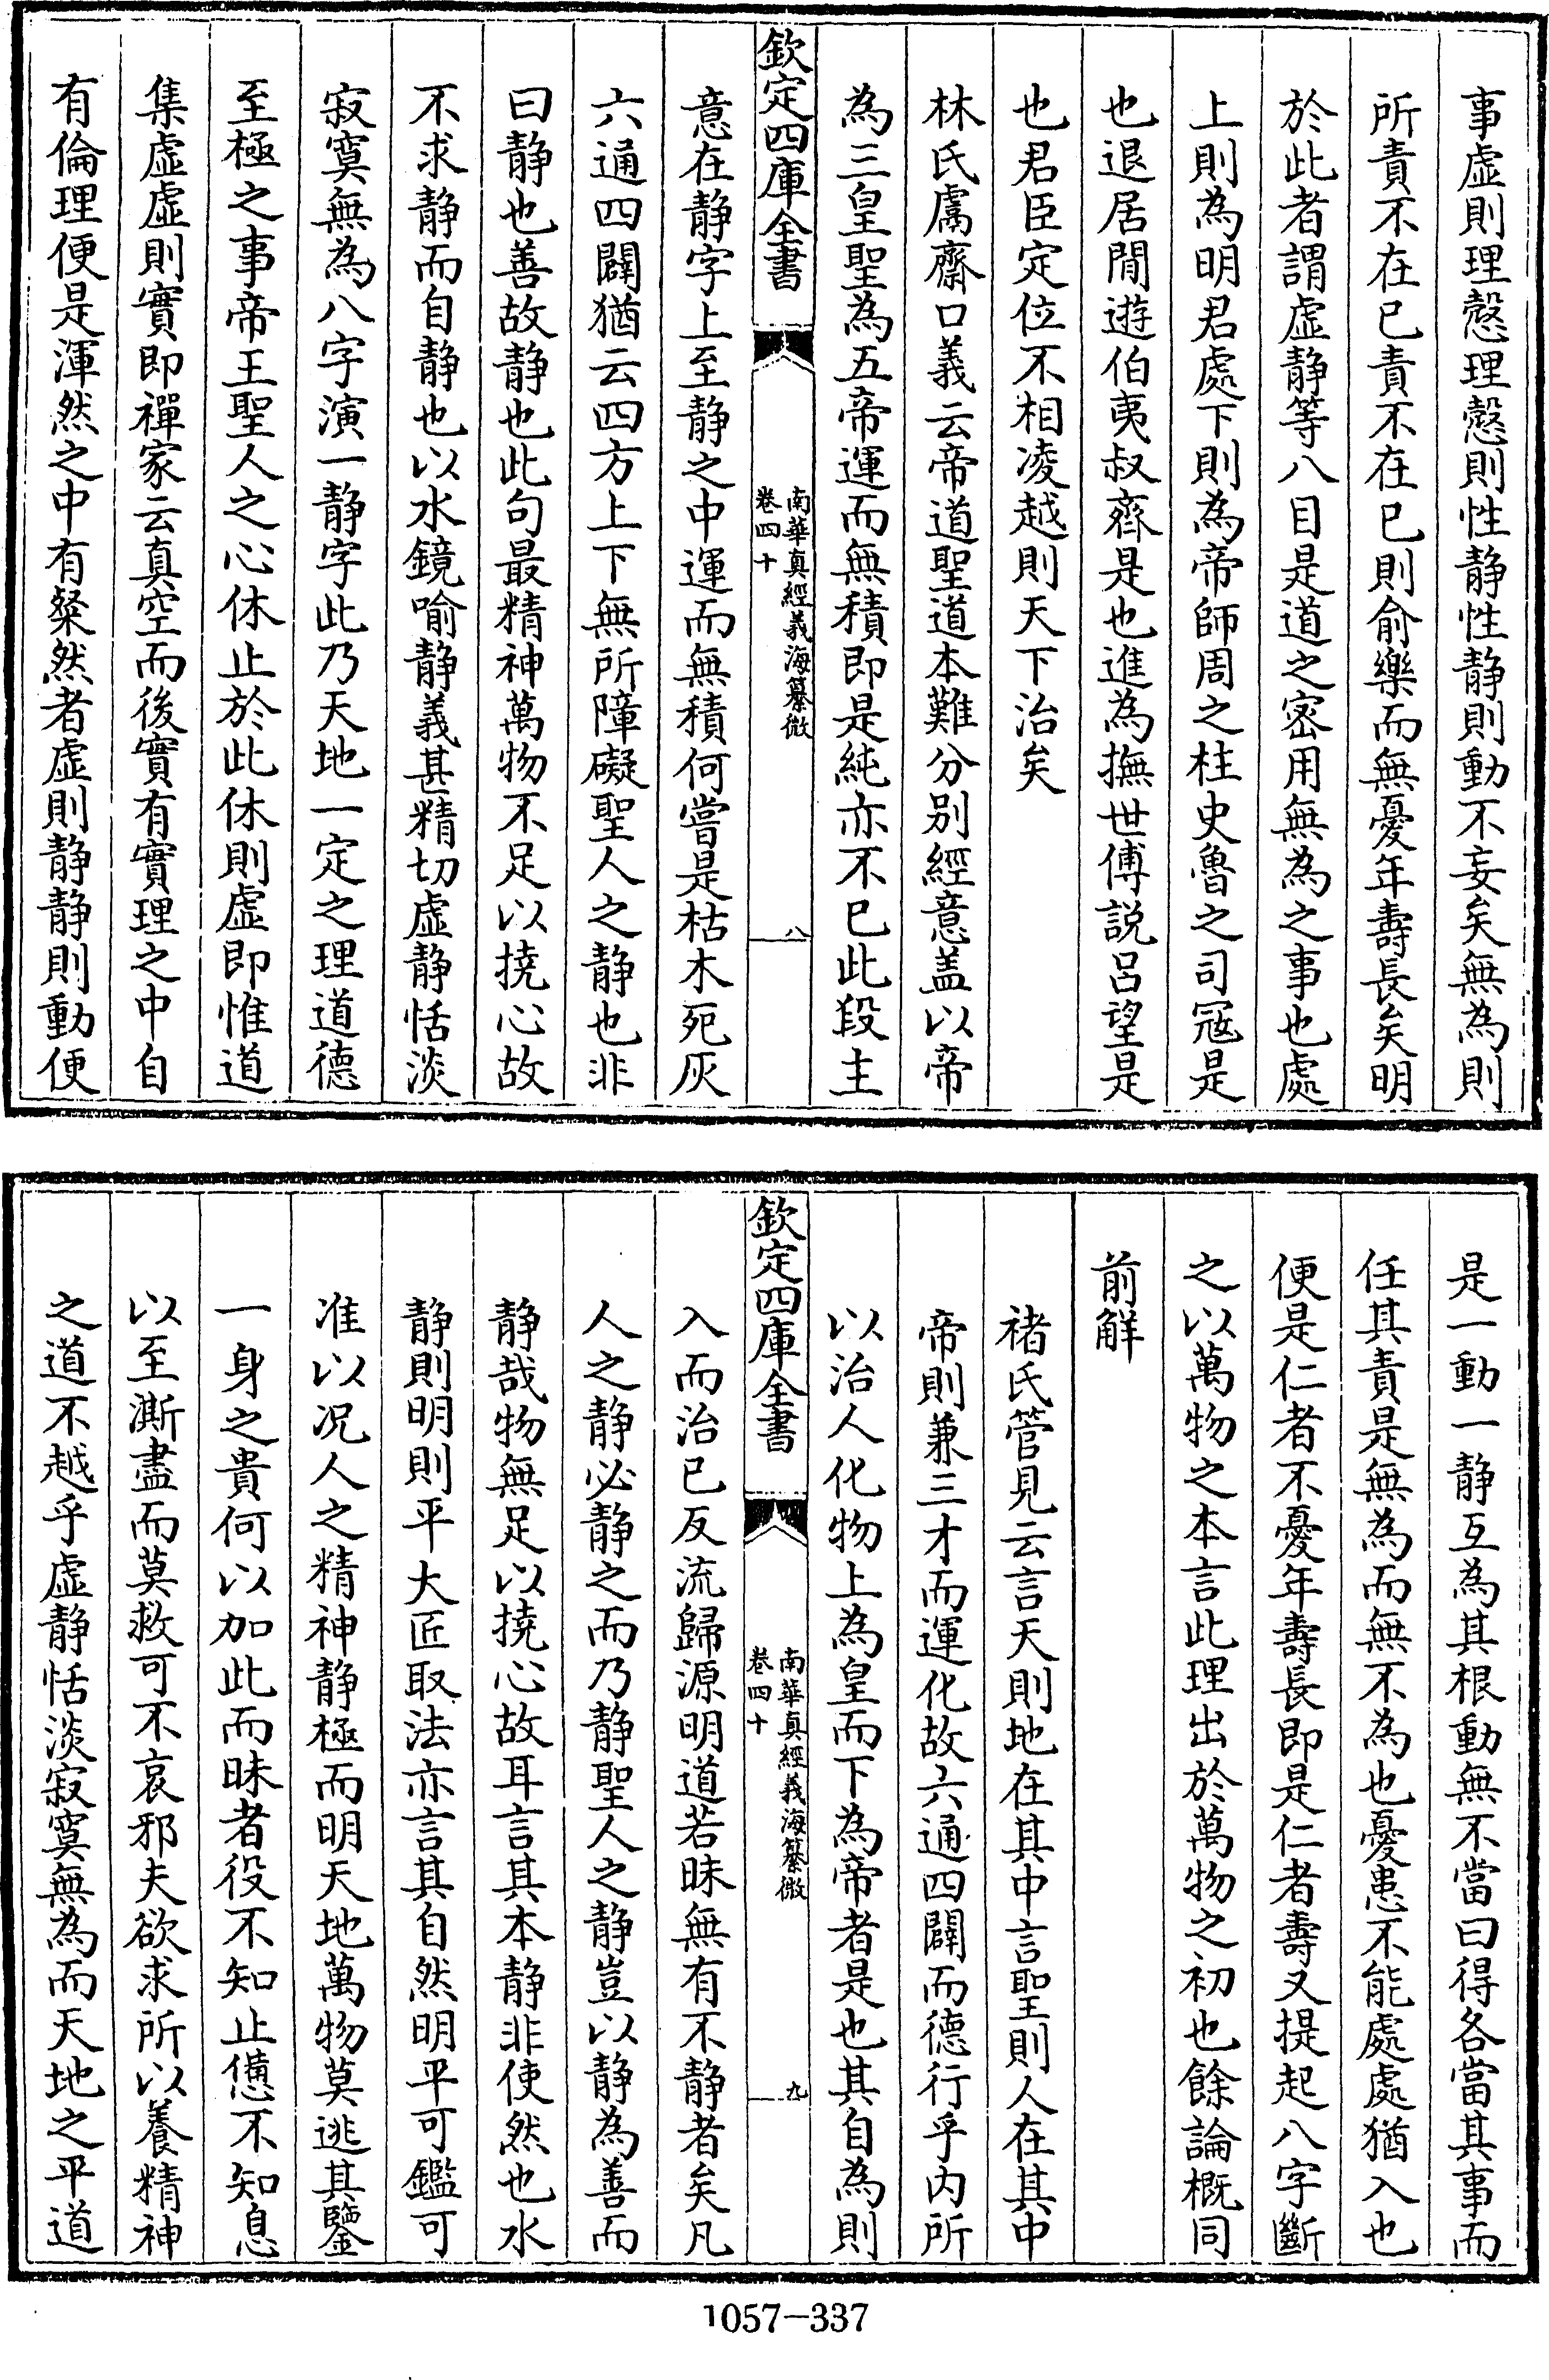 事虚則理慤理慤則性静性静則動不妄矣無為則
所責不在已責不在已則俞樂而無憂年壽長矣明
於此者謂虚静等八目是道之宻用無為之事也處
上則為明君處下則為帝師周之柱史魯之司冦是
也退居閒遊伯夷叔齊是也進為撫世傅説吕望是
也君臣定位不相凌越則天下治矣
林氏鬳齋口義云帝道聖道本難分别經意盖以帝
為三皇聖為五帝運而無積即是純亦不已此段主
欽定四庫全書
南華真經義海纂微
卷四十
八
意在静字上至静之中運而無積何嘗是枯木死灰
六通四闢猶云四方上下無所障礙聖人之静也非
曰静也善故静也此句最精神萬物不足以撓心故
不求静而自静也以水鏡喻静義甚精切虚静恬淡
寂寞無為八字演一静字此乃天地一定之理道德
至極之事帝王聖人之心休止於此休則虚即惟道
集虚虚則實即禪家云真空而後實有實理之中自
有倫理便是渾然之中有粲然者虚則静静則動便
是一動一静互為其根動無不當曰得各當其事而
任其責是無為而無不為也憂患不能處處猶入也
便是仁者不憂年壽長即是仁者壽又提起八字斷
之以萬物之本言此理出於萬物之初也餘論概同
前解
褚氏管見云言天則地在其中言聖則人在其中
帝則兼三才而運化故六通四闢而德行乎内所
以治人化物上為皇而下為帝者是也其自為則
欽定四庫全書
南華真經義海纂微
卷四十
九
入而治已反流歸源明道若昧無有不静者矣凡
人之静必静之而乃静聖人之静豈以静為善而
静哉物無足以撓心故耳言其本静非使然也水
静則明則平大匠取法亦言其自然明平可鑑可
准以况人之精神静極而明天地萬物莫逃其鑒
一身之貴何以加此而昧者役不知止憊不知息
以至澌盡而莫救可不哀邪夫欲求所以養精神
之道不越乎虚静恬淡寂寞無為而天地之平道
1057-337